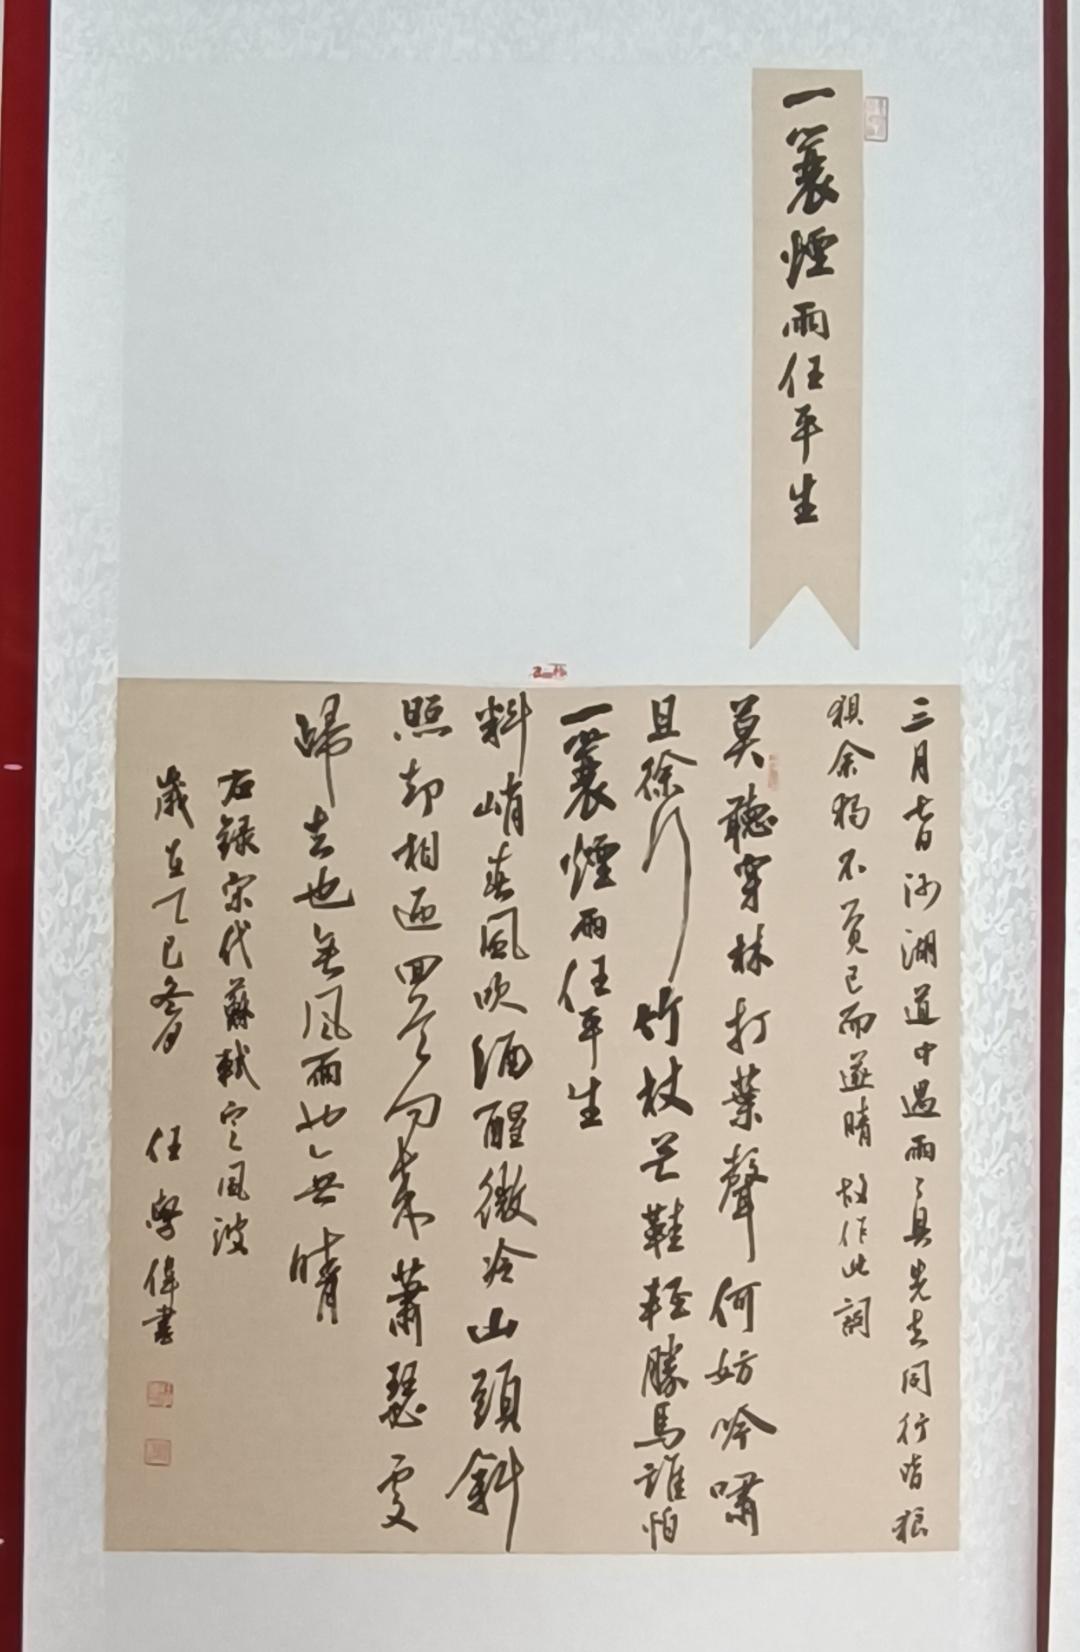 一蓑煙雨任平生
三月七日沙湖道中遇雨〻具先去同行皆狼
狽余獨不覺已而遂晴故作此詞
莫聽穿林打葉聲何妨吟嘯
且徐行竹杖芒鞋輕勝馬誰怕
一蓑煙雨任平生
料峭春風吹酒醒微冷山頭斜
照却相迎回首向来蕭瑟處
歸去也無風雨也無晴
右録宋代蘇軾定風波
歲在乙巳冬月 任學偉書